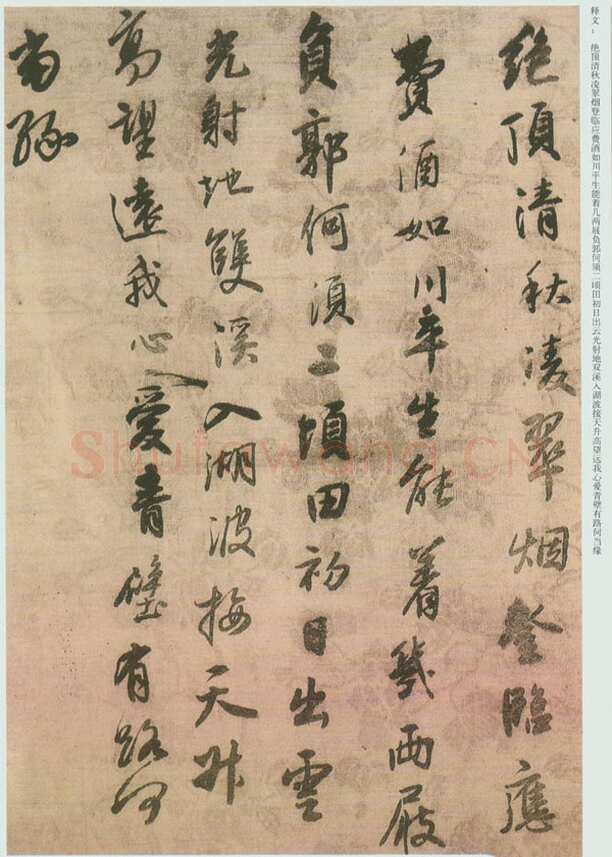 释文：
绝顶清秋凌翠烟登临应费酒如川平生能着几两屐负郭何须二顷田初日出云光射地双溪入湖波接天升高望远我心爱青壁有路何当缘
絶頂清秋凌翠烟登臨應
費酒如川平生能着幾兩屐
負郭何須二頃田初日出雲
光射地雙溪入湖波接天升
高望遠我心愛青壁有路何
當緣
Shufawang.CN